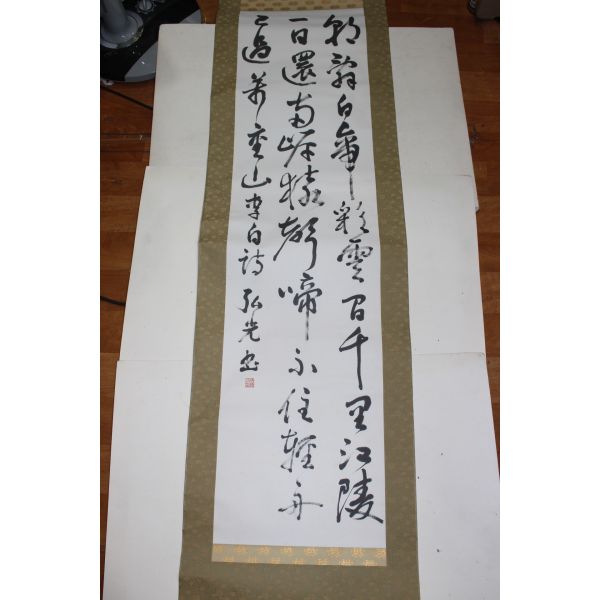 朝辭白帝彩雲間千里江陵
一日還両岸猿聲啼不住輕舟
已過萬重山李白詩 弘光書